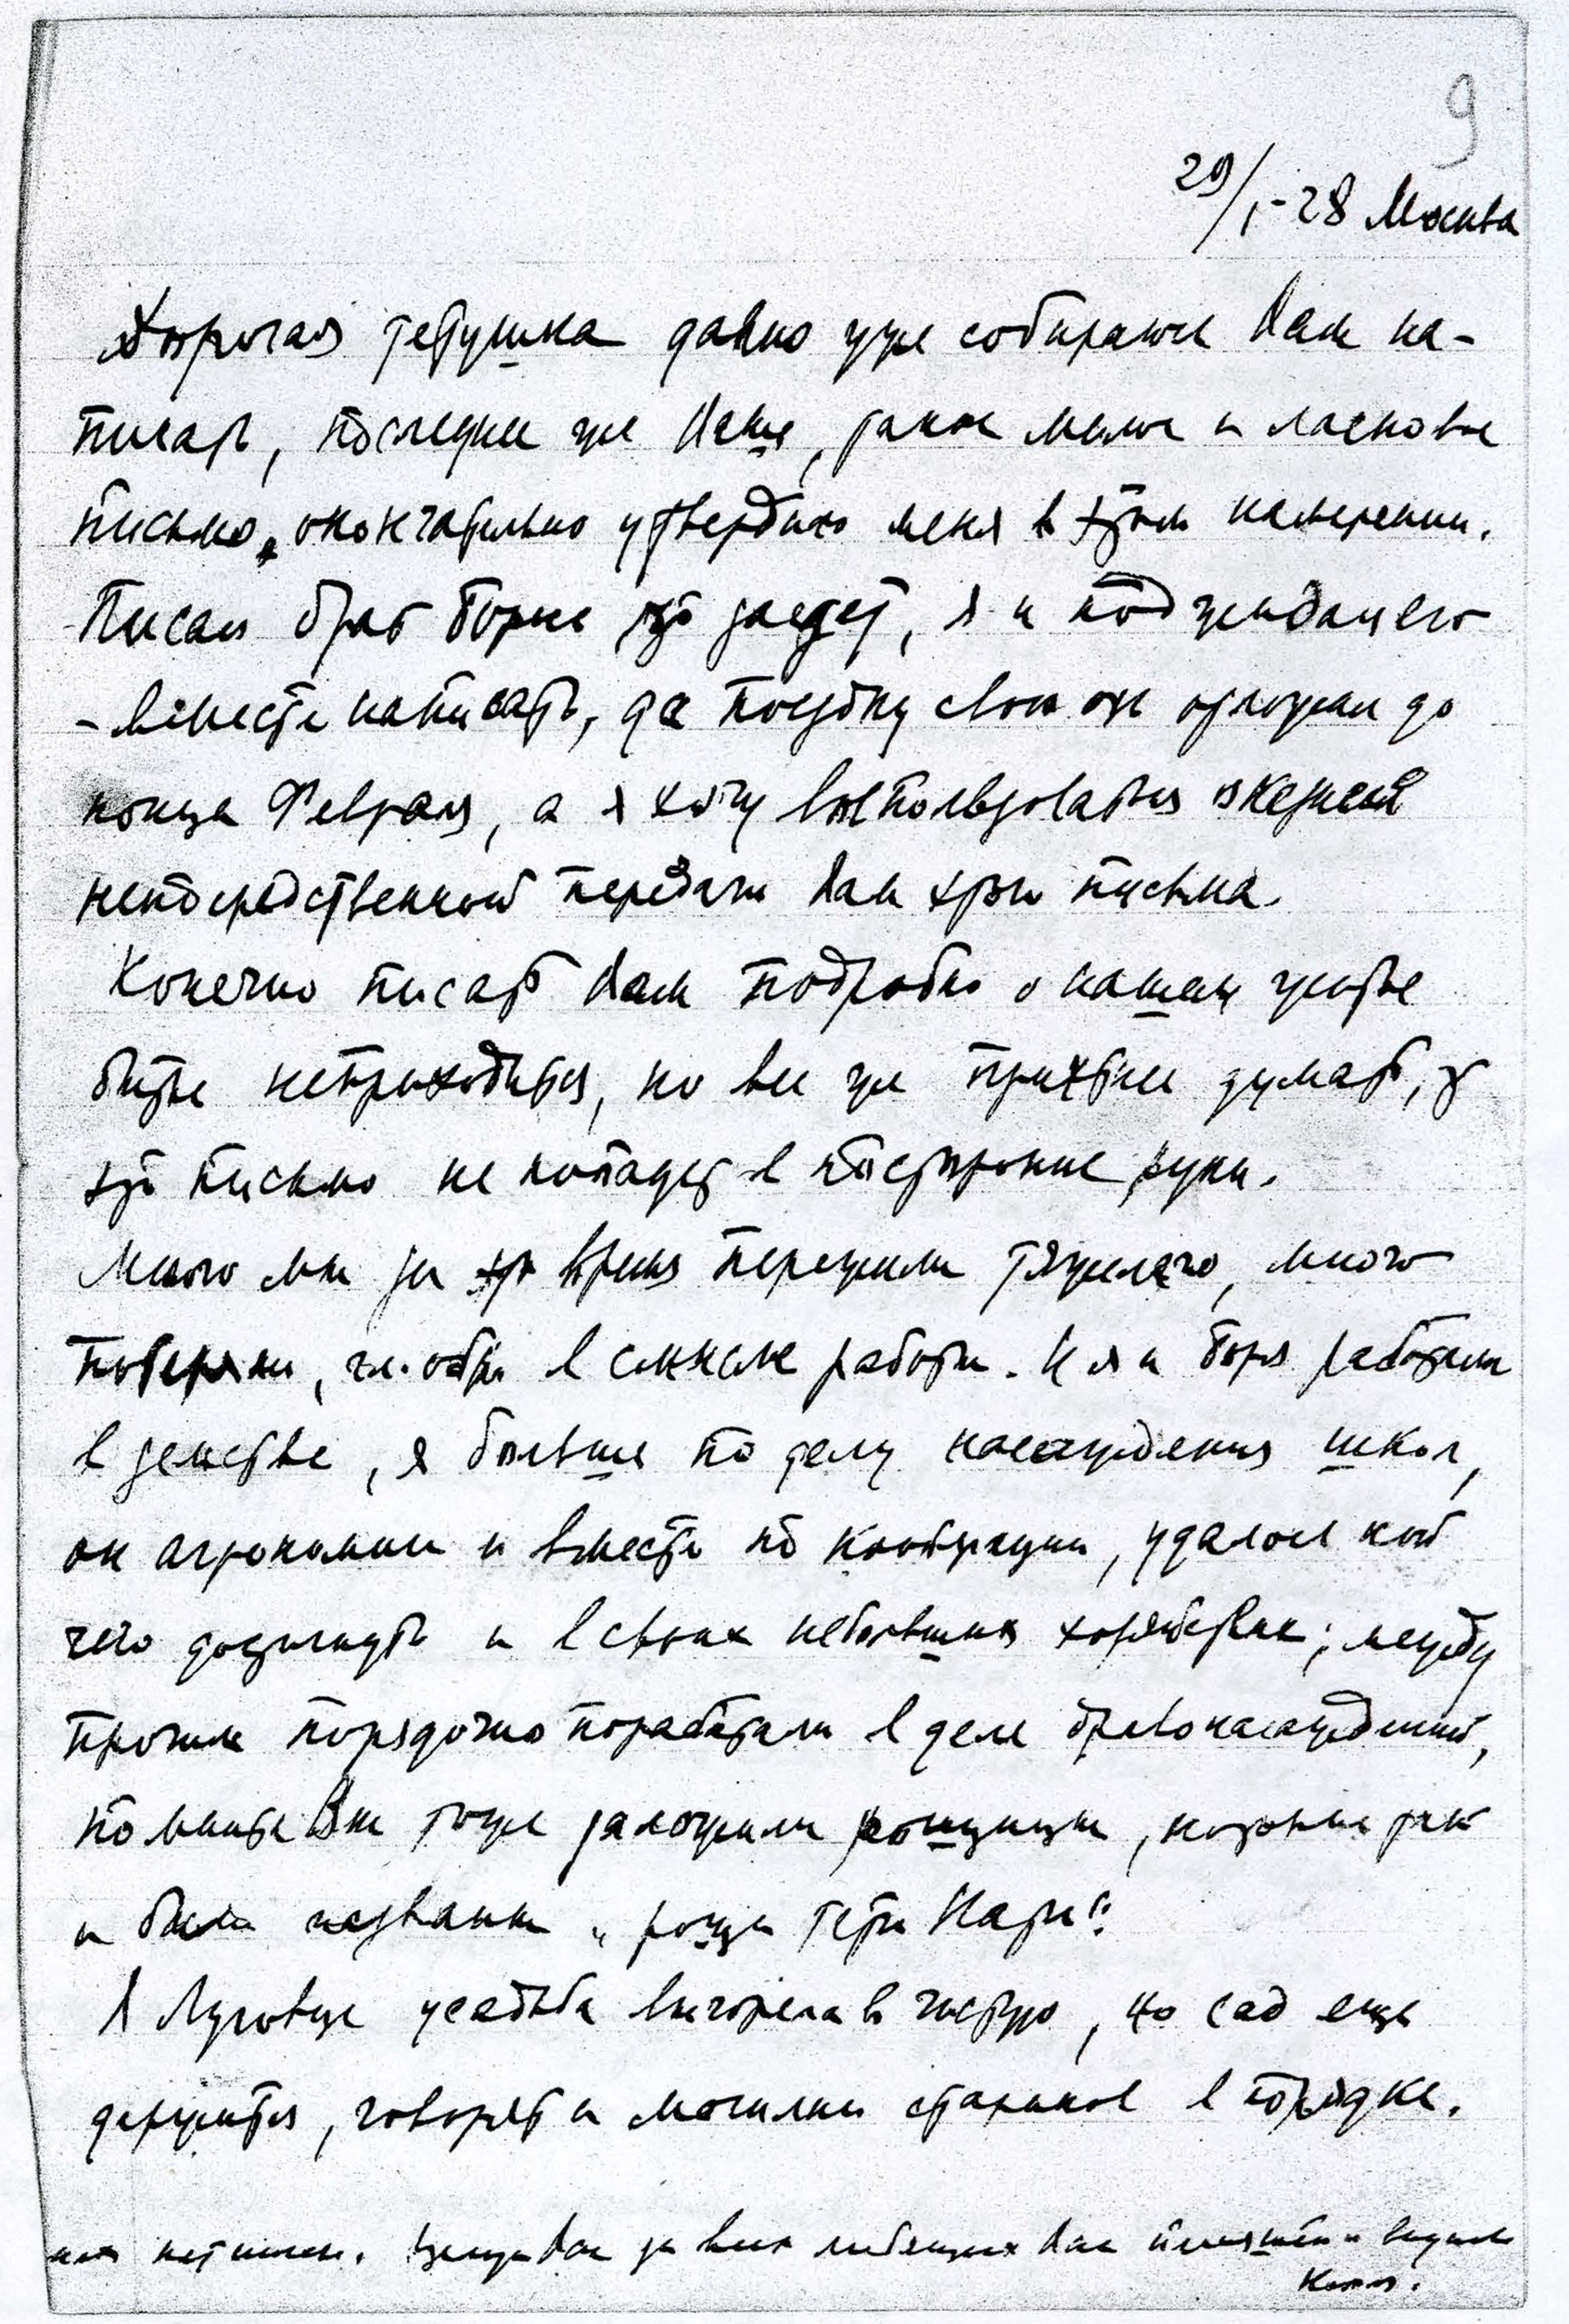 9
29/I-28 Москва
Дорогая тетушка давно уже собираюсь Вам на-
писать, последнее же Ваше, такое милое и ласковое
письмо, окончательно утвердило меня в этом намерении.
Писал брат Боря что заедет, я и поджидал его
- вместе написать, да поездку свою он отложил до
конца Февраля, а я хочу воспользоваться оказией
непосредственной передачи Вам этого письма.
Конечно писать Вам подробно о нашем житье
бытье неприходится, но все же приятнее думать, что
это письмо не попадет в посторонние руки.
Много мы за это время пережили тяжелаго, много
потеряли, гл. обр. в смысле работы. И я и Боря работали
в земстве, я больше по делу насаждения школ,
он агрономии и вместе по кооперации, удалось кой
чего достигнуть и в своих небольших хозяйствах; между
прочим порядочно поработали в деле древонасаждений,
помните Вы тоже заложили рощицы, которые так
и были названы „роща тети Нати".
В Луговце усадьба выгорела в чистую, но сад еще
держится, говорят и могилки стариков в порядке.
нет имен. Целую Вас за всех любящих Вас